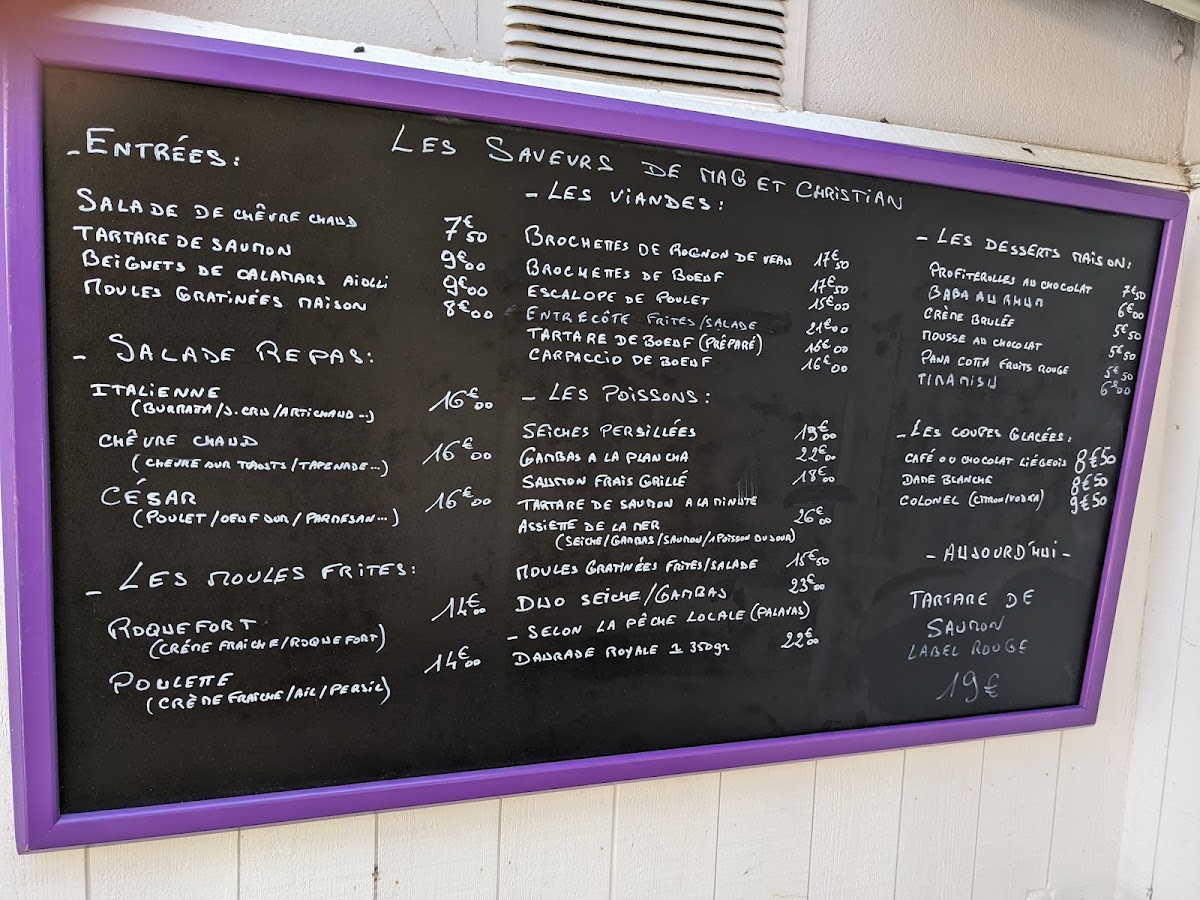 LES SAVEURS DE MAG ET CHRISTIAN
- ENTRÉES:
SALADE DE CHÊVRE CHAUD 7€50
TARTARE DE SAUMON 9€00
BEIGNETS DE CALAMARS AIOLLI 9€00
MOULES GRATINÉES MAISON 8€00
- SALADE REPAS:
ITALIENNE 16€00
(BURRATA/J.CRU/ARTICHAUD...)
CHÊVRE CHAUD 16€00
(CHEVRE SUR TOASTS/TAPENADE...)
CÉSAR 16€00
(POULET/OEUF DUR/PARMESAN...)
- LES MOULES FRITES:
ROQUEFORT 14€00
(CRÉME FRAICHE/ROQUEFORT)
POULETTE 14€00
(CRÈME FRAICHE/AIL/PERSIL)
- LES VIANDES:
BROCHETTES DE ROGNON DE VEAU 17€50
BROCHETTES DE BOEUF 17€50
ESCALOPE DE POULET 15€00
ENTRECÔTE FRITES/SALADE 21€00
TARTARE DE BOEUF (PRÉPARÉ) 16€00
CARPACCIO DE BOEUF 16€00
- LES POISSONS:
SEICHES PERSILLÉES 19€00
GAMBAS A LA PLANCHA 22€00
SAUMON FRAIS GRILLÉ 18€00
TARTARE DE SAUMON A LA MINUTE
ASSIETTE DE LA MER 26€00
(SEICHE/GAMBAS/SAUMON/1 POISSON DU JOUR)
MOULES GRATINÉES FRITES/SALADE 15€50
DUO SEICHE/GAMBAS 23€00
- SELON LA PÊCHE LOCALE (PALAVAS)
DAURADE ROYALE 1 350gr 22€00
- LES DESSERTS MAISON:
PROFITEROLLES AU CHOCOLAT 7€50
BABA AU RHUM 6€00
CRÈME BRULÉE 5€50
MOUSSE AU CHOCOLAT 5€50
PANA COTTA FRUITS ROUGE 5€50
TIRAMISU 6€00
- LES COUPES GLACÉES:
CAFÉ OU CHOCOLAT LIÉGEOIS 8€50
DAME BLANCHE 8€50
COLONEL (CITRON/VODKA) 9€50
- AUJOURD'HUI -
TARTARE DE
SAUMON
LABEL ROUGE
19€